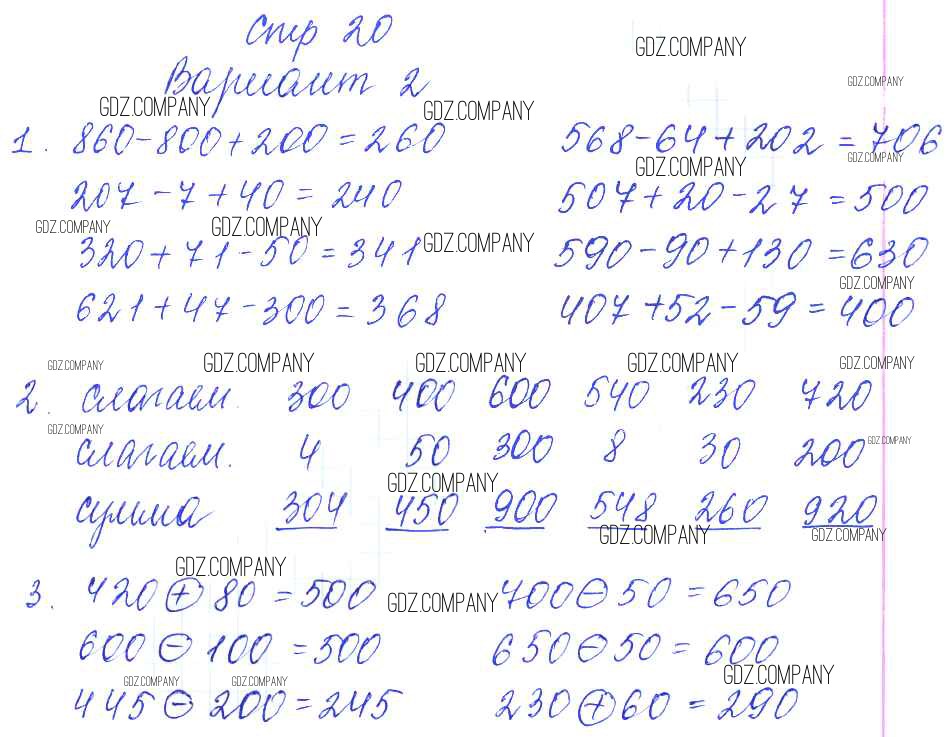 Стр 20
GDZ.COMPANY
Вариант 2
GDZ.COMPANY
GDZ.COMPANY GDZ.COMPANY
1. 860-800+200=260 568-64+202=706
GDZ.COMPANY GDZ.COMPANY
207-7+40=240 507+20-27=500
GDZ.COMPANY GDZ.COMPANY GDZ.COMPANY
320+71-50=341 590-90+130=630
GDZ.COMPANY
621+47-300=368 407+52-59=400
GDZ.COMPANY GDZ.COMPANY GDZ.COMPANY GDZ.COMPANY GDZ.COMPANY
2. слагаем. 300 400 600 540 230 720
GDZ.COMPANY GDZ.COMPANY
слагаем. 4 50 300 8 30 200
GDZ.COMPANY
сумма 304 450 900 548 260 920
GDZ.COMPANY GDZ.COMPANY
GDZ.COMPANY
3. 420⊕80=500 700⊖50=650
GDZ.COMPANY
600⊖100=500 650⊖50=600
GDZ.COMPANY GDZ.COMPANY GDZ.COMPANY
445⊖200=245 230⊕60=290